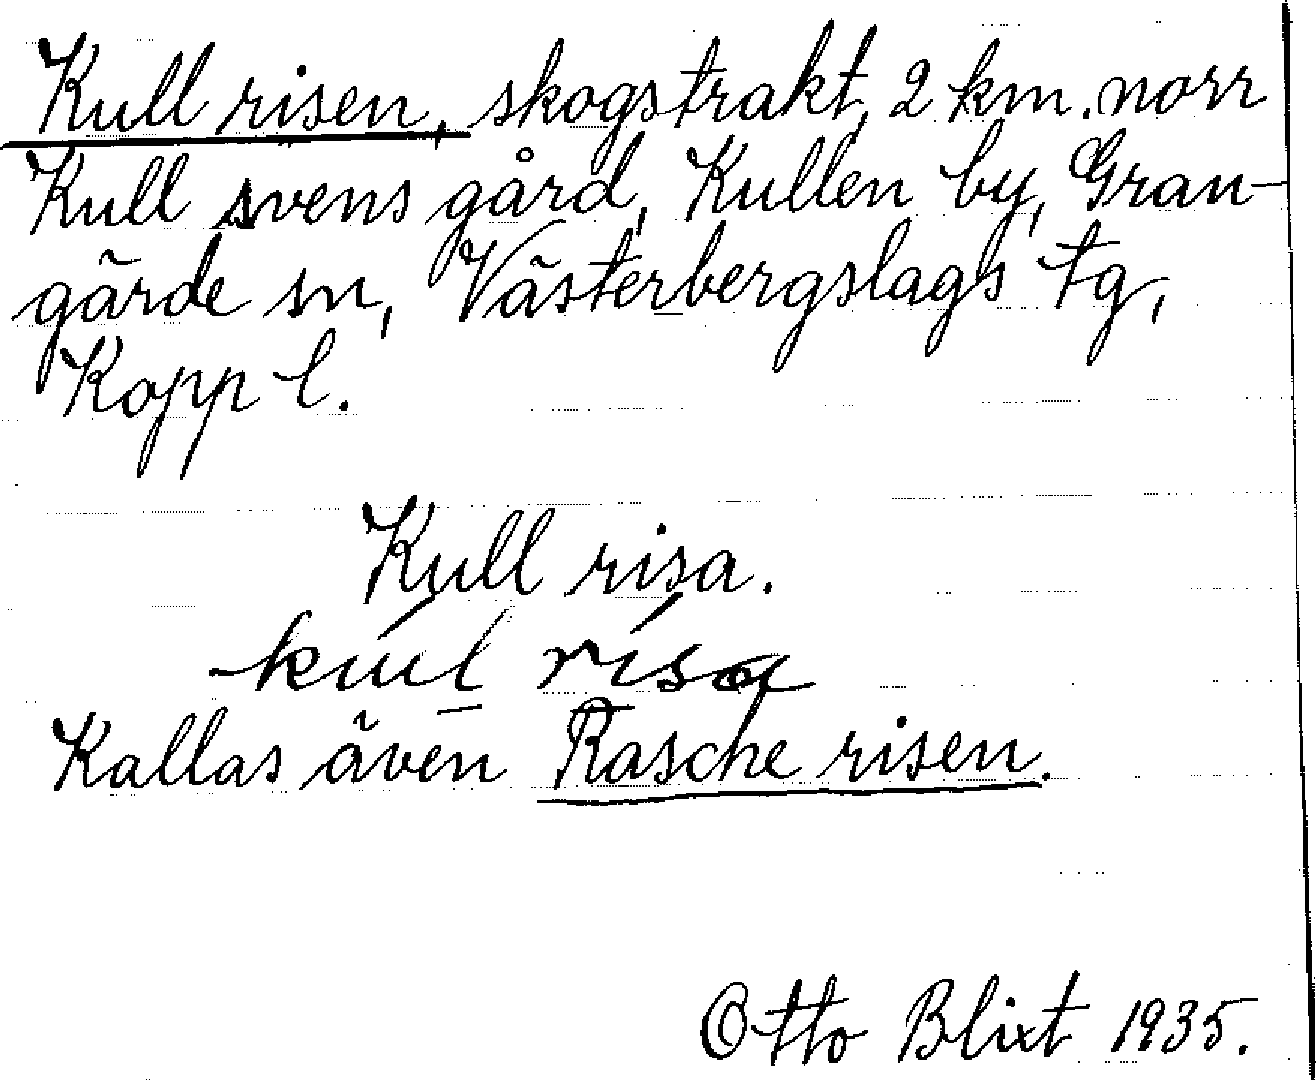 Kull risen, skogstrakt, 2 km. norr
Kull svens gård, Kullen by, Gran-
gärde sn, Västerbergslags tg,
Kopp l.
Kull risa.
kúl rísa
Kallas även Rasche risen.
Otto Blixt 1935.